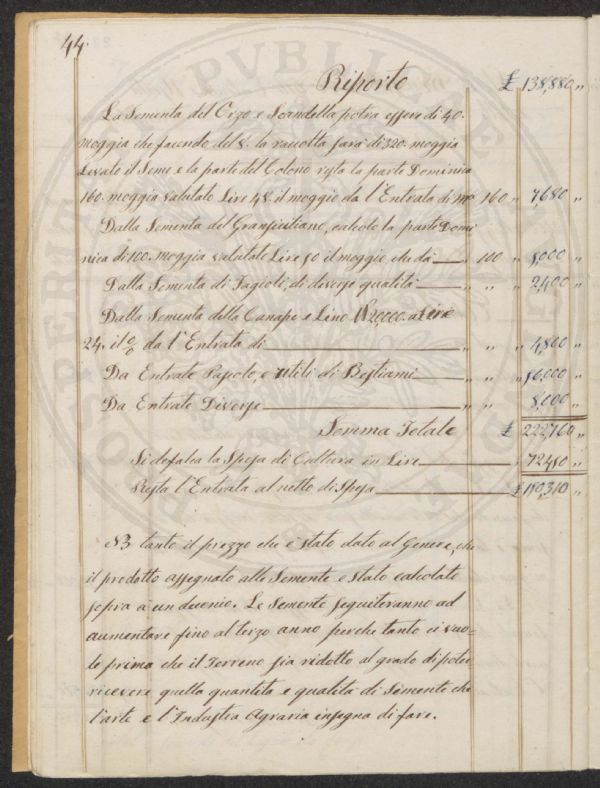 44.
Riporto £ 138,880 "
La Sementa del Orzo e Scandella potra essere di 40.
moggia che facendo del 8. la raccolta sarà di 320. moggia
Levato il Seme e la parte del Colono resta la parte Dominica
160. moggia valutato Lire 48. il moggio da l'Entrata di Mª 160 " 7680 "
Dalla Sementa del Gransiciliano, calcolo la parte Domi
nica di 100. moggia valutate Lire 50 il moggio, che dà " 100 " 5,000 "
Dalla Sementa di Fagioli, di diverse qualità " " " 2,400 "
Dalla Sementa della Canape e Lino 20,000. a Lire
24. il % da l'Entrata di " " " 4,800 "
Da Entrate Pascolo, e utili di Bestiami " " " 56,000 "
Da Entrate Diverse " " 8,000 "
Somma Totale £ 222,760 "
Si defalca la Spesa di Cultura in Lire " 72,450 "
Resta l'Entrata al netto di Spesa £ 150,310 "
NB tanto il prezzo che è stato dato al Genere, che
il prodotto assegnato alle Semente e stato calcolato
sopra à un decenio. Le Semente seguiteranno ad
aumentare fino al terzo anno perche tanto ci vuo-
le prima che il Terreno sia ridotto al grado di poter
ricevere quella quantita e qualità di Semente che
l'arte e l'Industria Agraria insegna di fare.